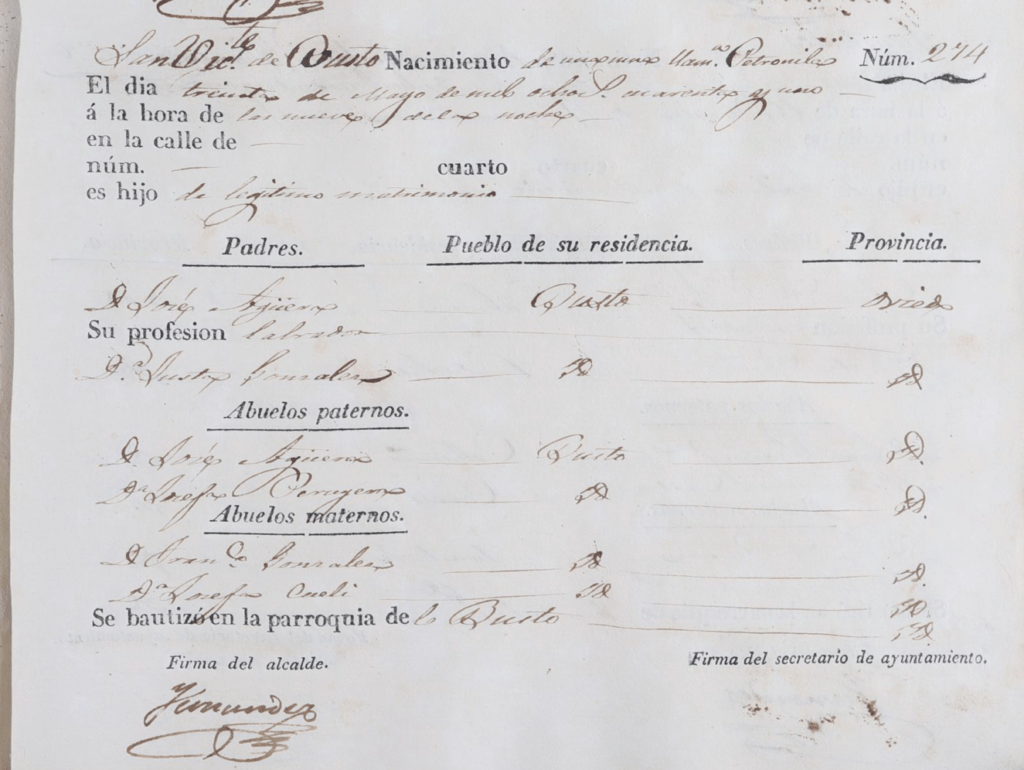 San Vic.te de Busto Nacimiento de una niña llam.da Petronila Núm. 274
El dia treinta de Mayo de mil ocho C. cuarenta y uno
á la hora de las nueve de la noche
en la calle de
núm. cuarto
es hijo de legitimo matrimonio
Padres. Pueblo de su residencia. Provincia.
D. José Agüera Busto Oviedo
Su profesion labrador
D.ª Justa Gonzalez Id Id
Abuelos paternos.
D. José Agüera Busto Id.
D.ª Josefa Id Id.
Abuelos maternos.
D. Fran.co Gonzalez Id Id.
D.ª Josefa Cueli Id Id.
Se bautizó en la parroquia de Busto Id
Firma del alcalde. Firma del secretario de ayuntamiento.
Fernandez